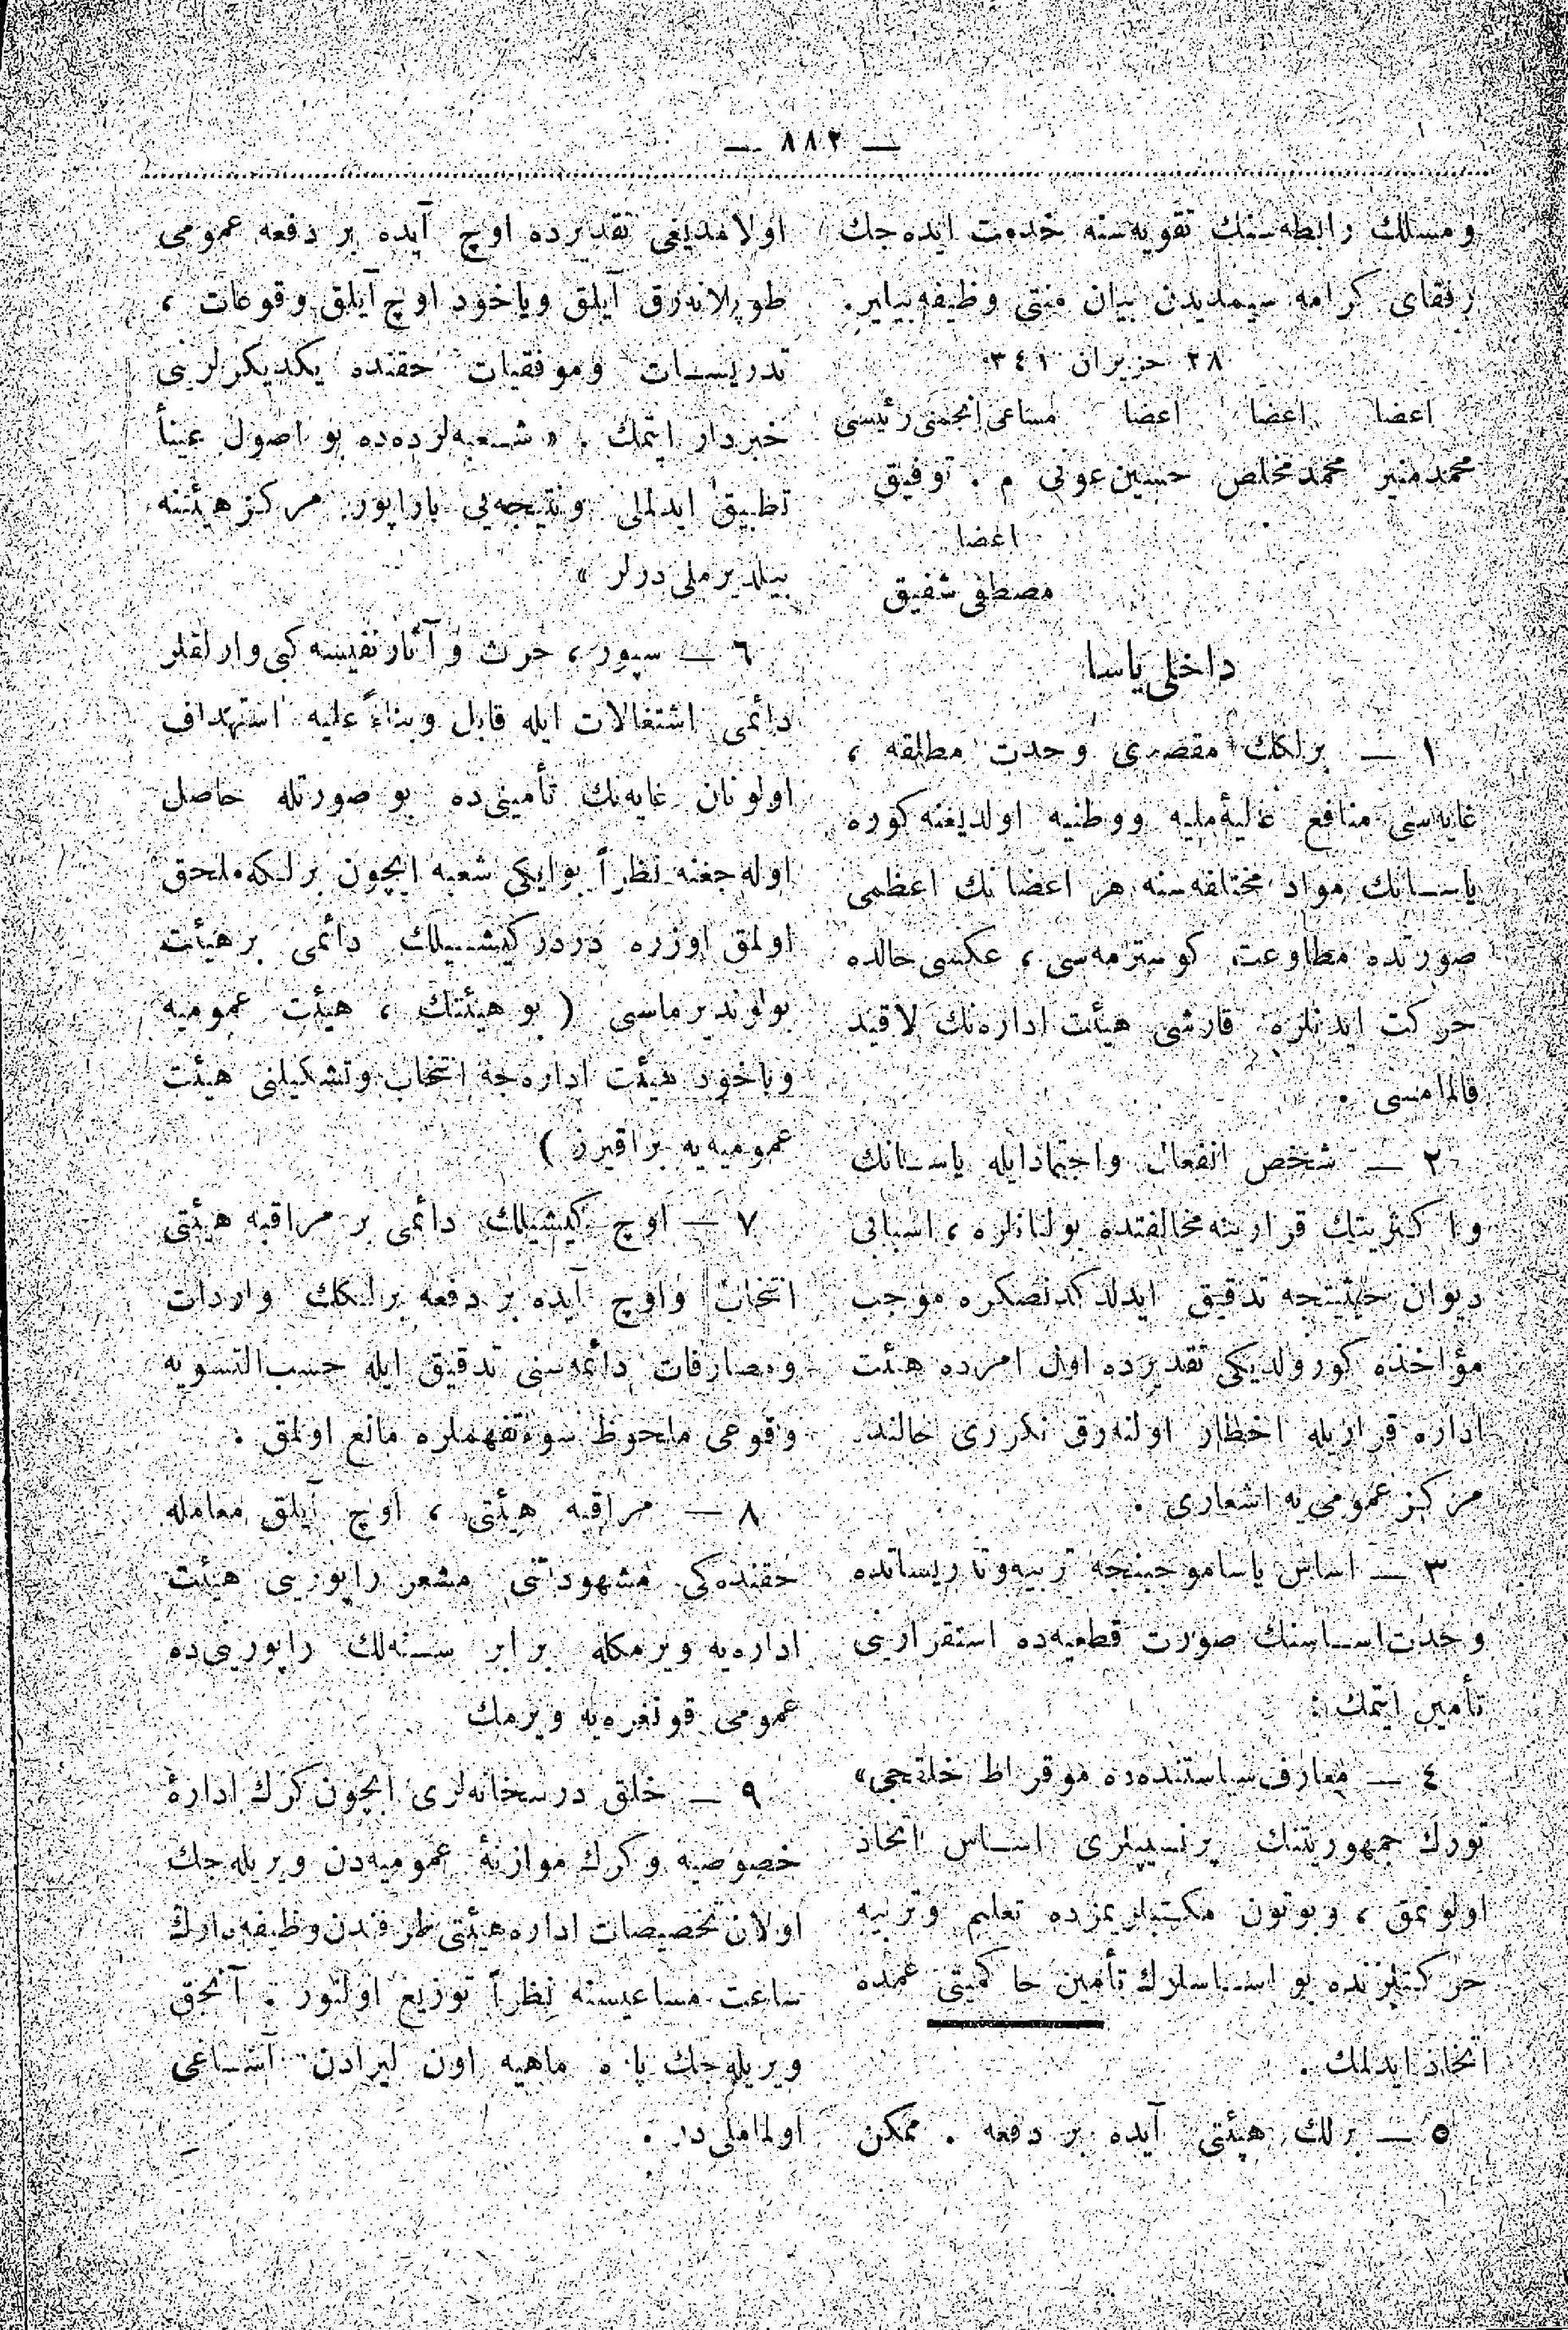 — ٨٨٢ —
ومسلك رابطه‌سنك تقويه‌سنه خدمت ايده‌جك
رفقاى كرامه سيمديدن بيان منتى وظيفه بيلير.
٢٨ حزيران ٣٤١
اعضا اعضا اعضا مساعى انجمنى رئيسى
محمد منير محمد مخلص حسين عونى م . توفيق
اعضا
مصطفى شفيق
داخلى ياسا
١ — برلكك مقصدى وحدت مطلقه ،
غايه‌سى منافع عاليهٔ مليه ووطنيه اولديغنه كوره
ياسانك مواد مختلفه‌سنه هر اعضانك اعظمى
صورتده مطاوعت كوسترمه‌سى ، عكسى حالده
حركت ايدنلره قارشى هيئت اداره‌نك لاقيد
قالمامسى .
٢ — شخص انفعال واجتهاد ايله ياسانك
وا كثريتك قرارينه مخالفتده بولنانلره ، اسبابى
ديوان حيثيتجه تدقيق ايدلدكدنصكره موجب
مؤاخذه كورولديكى تقديرده اول امرده هيئت
اداره قراريله اخطار اولنه‌رق تكررى حالنده
مركز عمومى‌يه اشعارى .
٣ — اساس ياسا موجبنجه تربيه وتدريساتده
وحدت اساسنك صورت قطعيه‌ده استقرارينى
تأمين ايتمك .
٤ — معارف سياستنده ده موقراط خلقجى»
تورك جمهوريتنك پرنسيپلرى اساس اتخاذ
اولونمق ، وبوتون مكتبلريمزده تعليم وتربيه
حركتلرنده بو اساسلرك تأمين حاكميتى عمده
اتخاذ ايدلمك .
٥ — برلك هيئتى آيده بر دفعه . ممكن
اولامديغى تقديرده اوچ آيده بر دفعه عمومى
طوپلانه‌رق آيلق وياخود اوچ آيلق وقوعات ،
تدريسات وموفقيات حقنده يكديكرلرينى
خبردار ايتمك . « شعبه‌لرده‌ده بو اصول عيناً
تطبيق ايدلملى ونتيجه‌يى باراپور مركز هيئتنه
بيلديرملى‌درلر »
٦ — سپور ، حرث و آثار نفيسه كبى وارلقلر
دائمى اشتغالات ايله قابل وبناءً عليه استهداف
اولونان غايه‌نك تأمينى‌ده بو صورتله حاصل
اوله‌جغنه نظراً بو ايكى شعبه ايچون برلكه ملحق
اولمق اوزره دردر كيشيلك دائمى بر هيئت
بولونديرماسى ( بو هيئتك ، هيئت عموميه
وياخود هيئت اداره‌جه انتخاب وتشكيلنى هيئت
عموميه‌يه براقيرز )
٧ — اوچ كيشيلك دائمى بر مراقبه هيئتى
انتخاب واوچ آيده بر دفعه برلكك واردات
ومصارفات دائمه‌سنى تدقيق ايله حسب التسويه
وقوعى ملحوظ سوءتفهملره مانع اولمق .
٨ — مراقبه هيئتى ، اوچ آيلق معامله
حقنده‌كى مشهوداتنى مشعر راپورينى هيئت
اداره‌يه ويرمكله برابر سنه‌لك راپورينى‌ده
عمومى قونغره‌يه ويرمك
٩ — خلق درسخانه‌لرى ايچون كرك ادارهٔ
خصوصيه وكرك موازنهٔ عموميه‌دن ويريله‌جك
اولان تخصيصات اداره هيئتى طرفندن وظيفه‌دارك
ساعت مساعيسنه نظراً توزيع اولنور . آنجق
ويريله‌جك پاره ماهيه اون ليرادن آشاغى
اولماملى‌در .